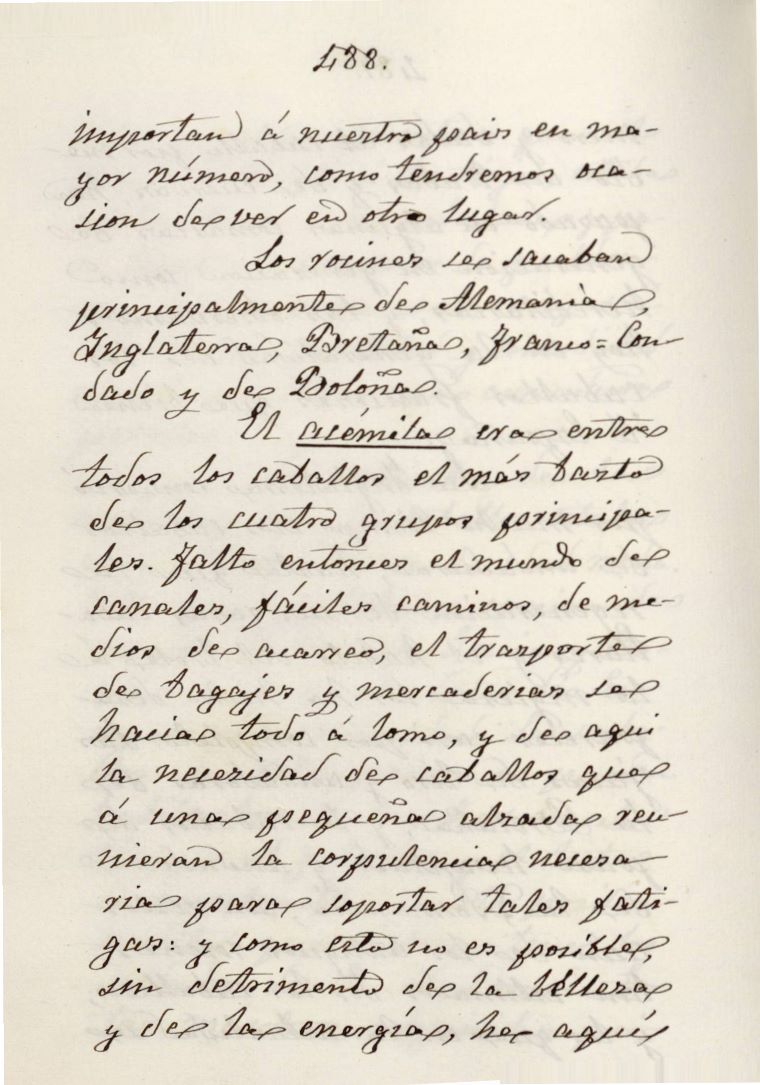 488.
importan á nuestro pais en ma-
yor número, como tendremos oca-
sion de ver en otro lugar.
Los rocines se sacaban
principalmente de Alemania,
Inglaterra, Bretaña, Franco=Con-
dado y de Boloña.
El acémila era entre
todos los caballos el más basto
de los cuatro grupos principa-
les. Falto entonces el mundo de
canales, fáciles caminos, de me-
dios de acarreo, el trasporte
de bagajes y mercaderias se
hacia todo á lomo, y de aqui
la necesidad de caballos que
á una pequeña alzada reu-
nieran la corpulencia necesa-
ria para soportar tales fati-
gas: y como esto no es posible,
sin detrimento de la belleza
y de la energía, he aquí